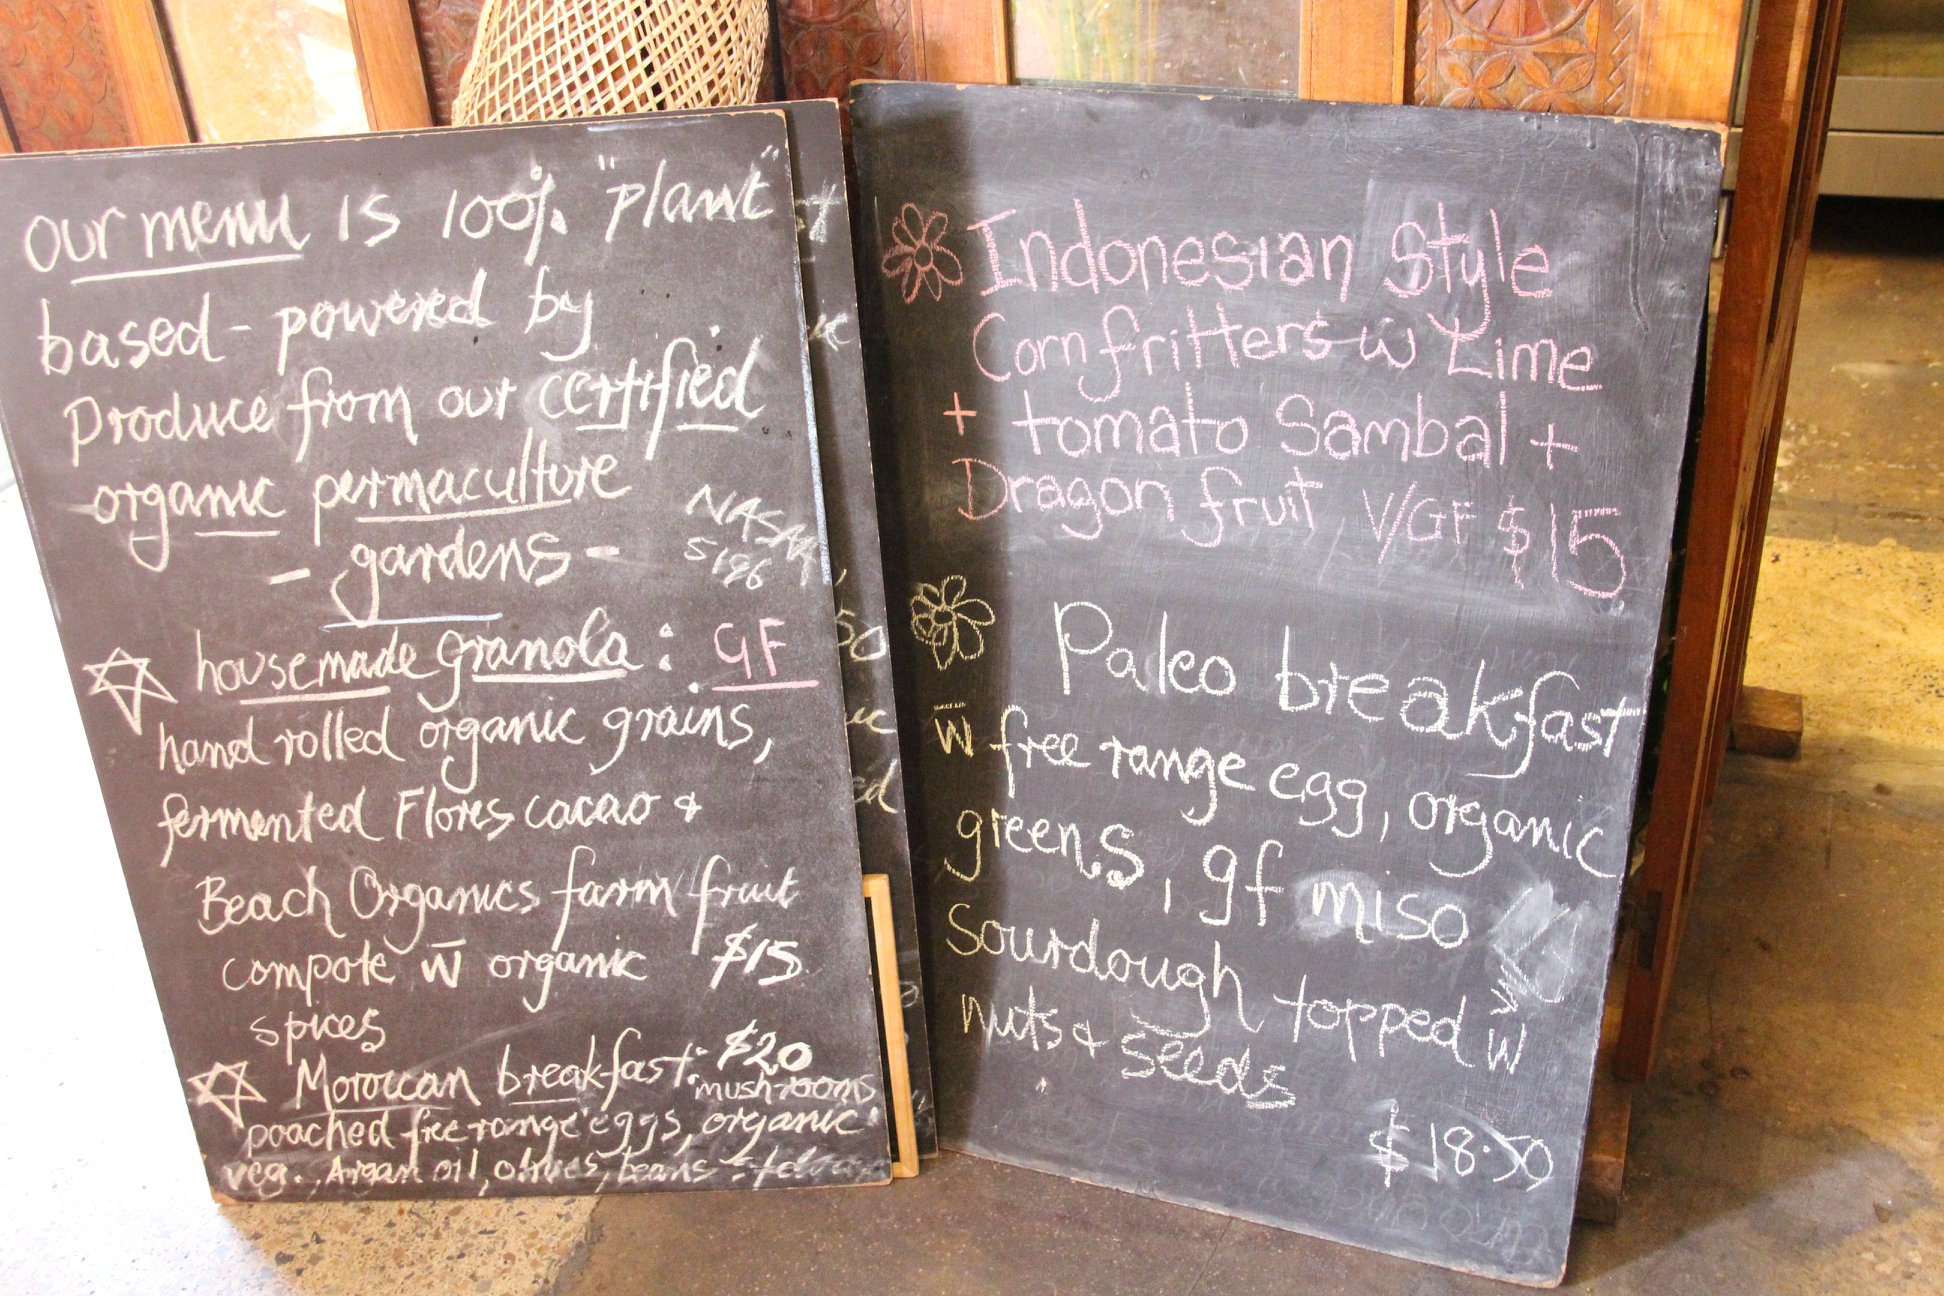 our menu is 100% "plant"
based - powered by
Produce from our certified
organic permaculture
- gardens -
NASAA
5196
housemade granola : GF
hand rolled organic grains,
fermented Flores cacao &
Beach Organics farm fruit
compote w̄ organic $15
spices
Moroccan breakfast: $20
mushrooms
poached free range eggs, organic
veg., Argan oil, olives, beans
Indonesian Style
Corn fritters w̄ Lime
+ tomato Sambal +
Dragon fruit V/GF $15
Paleo breakfast
w̄ free range egg, organic
greens, gf miso
Sourdough topped w̄
nuts & seeds
$18.50